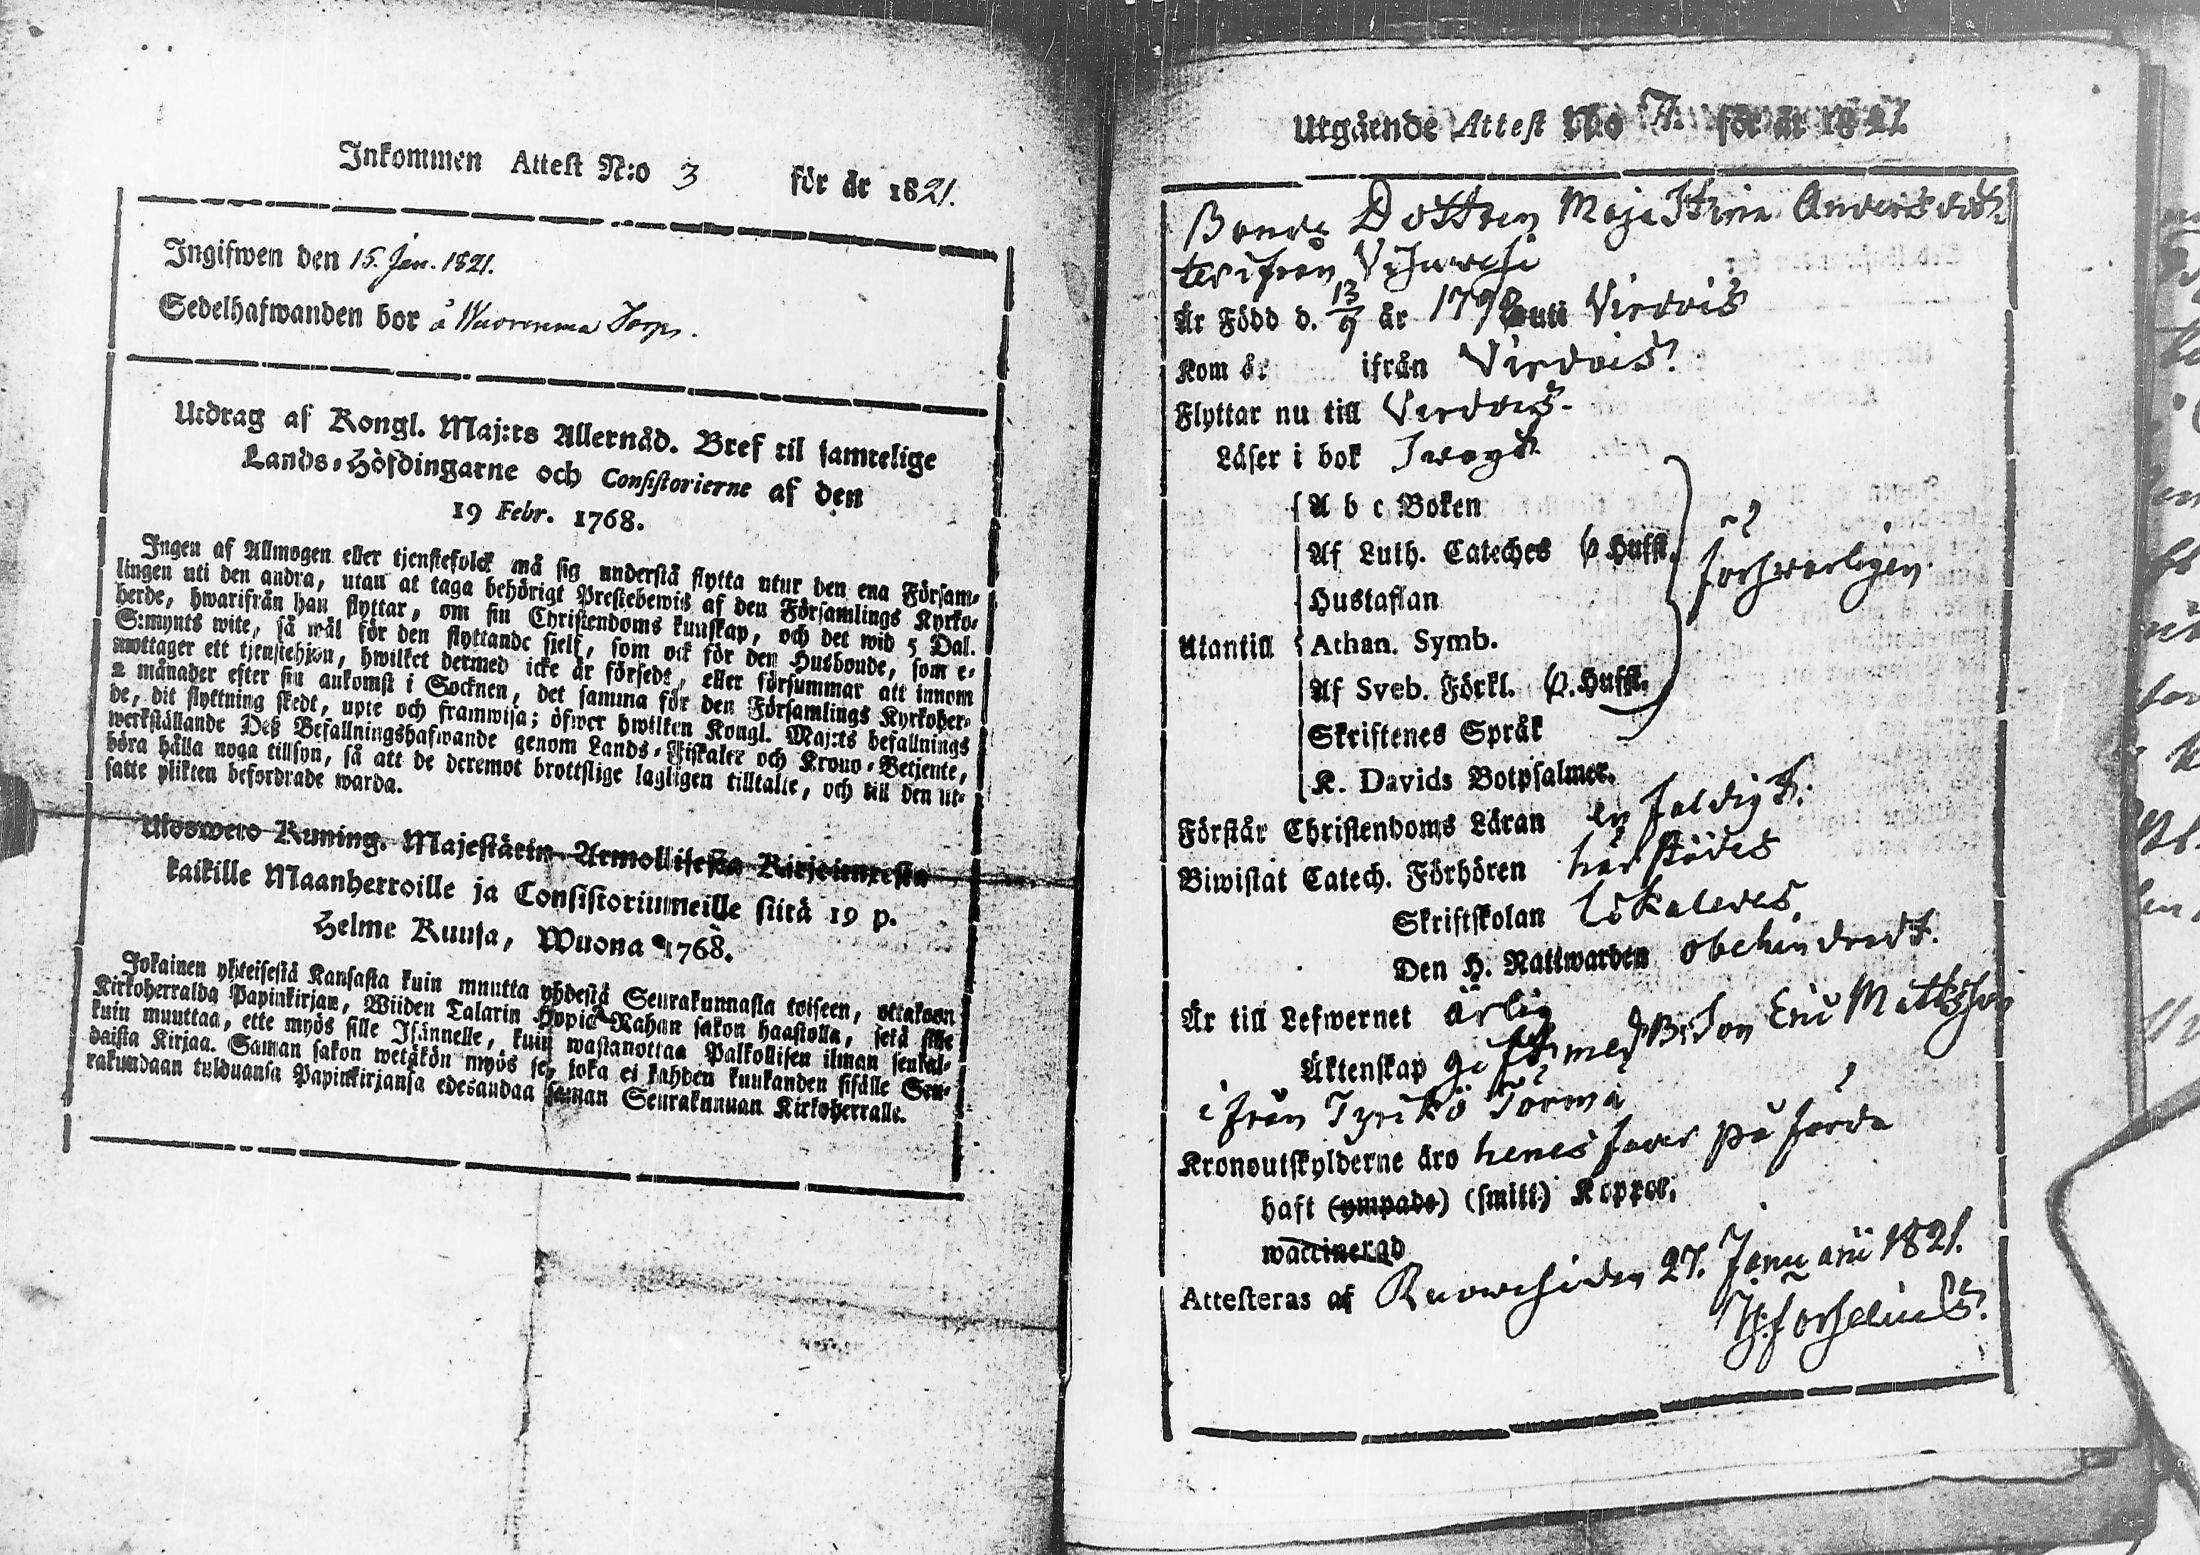 Inkommen Attest N:o 3 för år 1821.
Ingifwen den 15. Jan. 1821.
Sedelhafwanden bor å Wuorenma Torp.
Utdrag af Kongl. Maj:ts Allernåd. Bref til samtelige
Lands-Höfdingarne och Consistorierne af den
19 Febr. 1768.
Ingen af Allmogen eller tjenstefolck må sig understå flytta utur den ena Försam-
lingen uti den andra, utan at taga behörigt Prestebewis af den Församlings Kyrko-
herde, hwarifrån han flyttar, om sin Christendoms kunskap, och det wid 5 Dal.
S:mynts wite, så wäl för den flyttande sielf, som ock för den Husbonde, som e-
mottager ett tjenstehjon, hwilket dermed icke är försedt, eller försummar att innom
2 månader efter sin ankomst i Socknen, det samma för den Församlings Kyrkoher-
de, dit flyttning skedt, upte och framwisa; öfwer hwilken Kongl. Maj:ts befallnings
werkställande Deß Befallningshafwande genom Lands-Fiskaler och Krono-Betjente,
böra hålla noga tillsyn, så att de deremot brottslige lagligen tilltalte, och till den ut-
satte plikten befordrade warda.
Ulosweto Kuning. Majestätin Armollisesta Kirjoituxesta
kaikille Maanherroille ja Consistoriumeille siitä 19 p.
Helme Kuusa, Wuona 1768.
Jokainen yhteisestä Kansasta kuin muutta yhdestä Seurakunnasta toiseen, ottakoon
Kirkoherralda Papinkirjan, Wiiden Talarin Hopia Rahan sakon haastolla, sekä sille
kuin muuttaa, ette myös sille Isännelle, kuin wastanottaa Palkollisen ilman senkal-
daista Kirjaa. Saman sakon wetäkön myös se, joka ei kahden kuukanden sisälle Seu-
rakundaan tulduansa Papinkirjansa edesandaa saman Seurakunnan Kirkoherralle.
Utgående Attest N:o 7. för år 1821.
Bonde Dottren Maja Stina Andersdot
ter ifrån Wisuwesi
Är Född d. 13/9 år 1798 uti Virdois
Kom år ifrån Virdois
Flyttar nu till Virdois.
Läser i bok Swagt
A b c Boken
Af Luth. Cateches 6 Hufst.
Hustaflan
Utantill Athan. Symb.
Af Sveb. Förkl. 6. Hufst.
Skriftenes Språk
K. Davids Botpsalmer.
förswarligen
Förstår Christendoms Läran enfaldigt.
Biwistat Catech. Förhören härstädes
Skriftskolan lokaleres
Den H. Nattwarden obehindradt.
Är till Lefwernet ärlig
Äktenskap gift med B:Son Eric Mattsson
ifrån Tyrikö Törmä
Kronoutskylderne äro henes fader påförda
haft (ympade) (smitt) Koppor.
waccinerad
Attesteras af Ruowesi den 27. Januarii 1821.